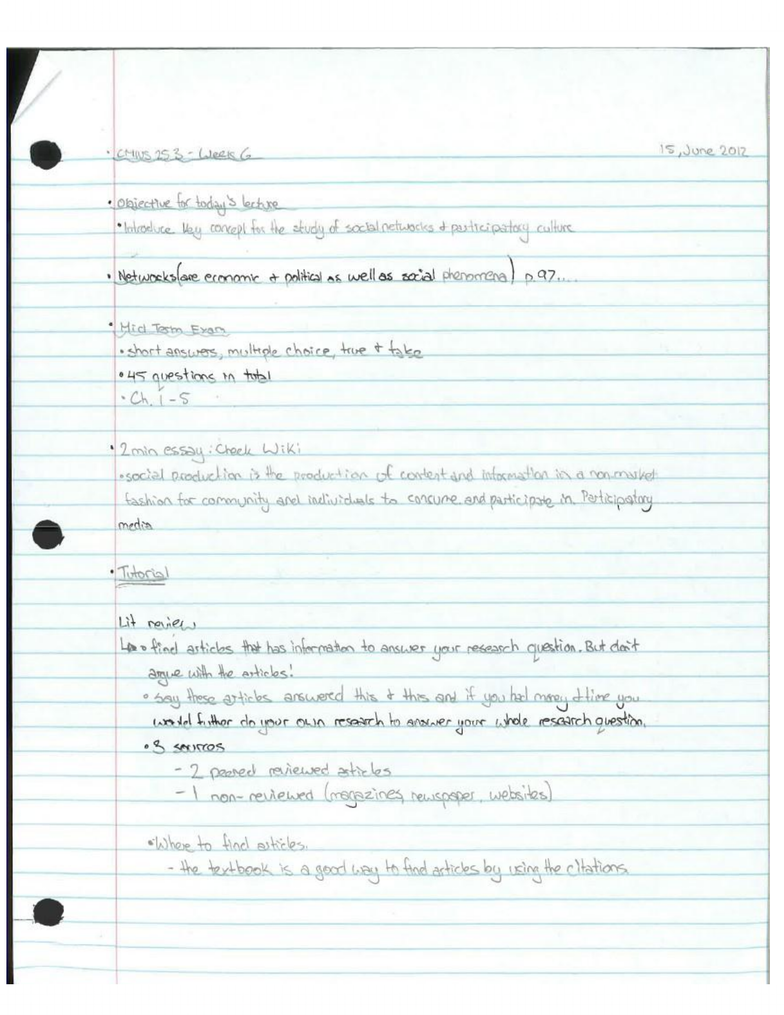 • CMNS 253 - Week 6
15, June 2012
• Objective for today's lecture
• Introduce key concept for the study of social networks & participatory culture
• Networks (are economic & political as well as social phenomena) p.97....
• Mid Term Exam
• short answers, multiple choice, true & false
• 45 questions in total
• Ch. 1 - 5
• 2min essay : Check Wiki
• social production is the production of content and information in a non market
fashion for community and individuals to consume and participate in Participatory
media
• Tutorial
Lit review
↳ • find articles that has information to answer your research question. But don't
argue with the articles!
• Say these articles answered this & this and if you had money & time you
would futher do your own research to answer your whole research question.
• 3 sources
- 2 peered reviewed articles
- 1 non-reviewed (magazines, newspaper, websites)
• Where to find articles.
- the textbook is a good way to find articles by using the citations.